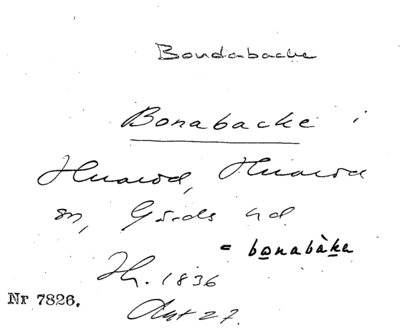 Bondabacke
Bonabacke i
Huaröd, Huaröd
sn, Gärds hd
= bonabàka
Hh. 1836
Akt 27.
Nr 7826.